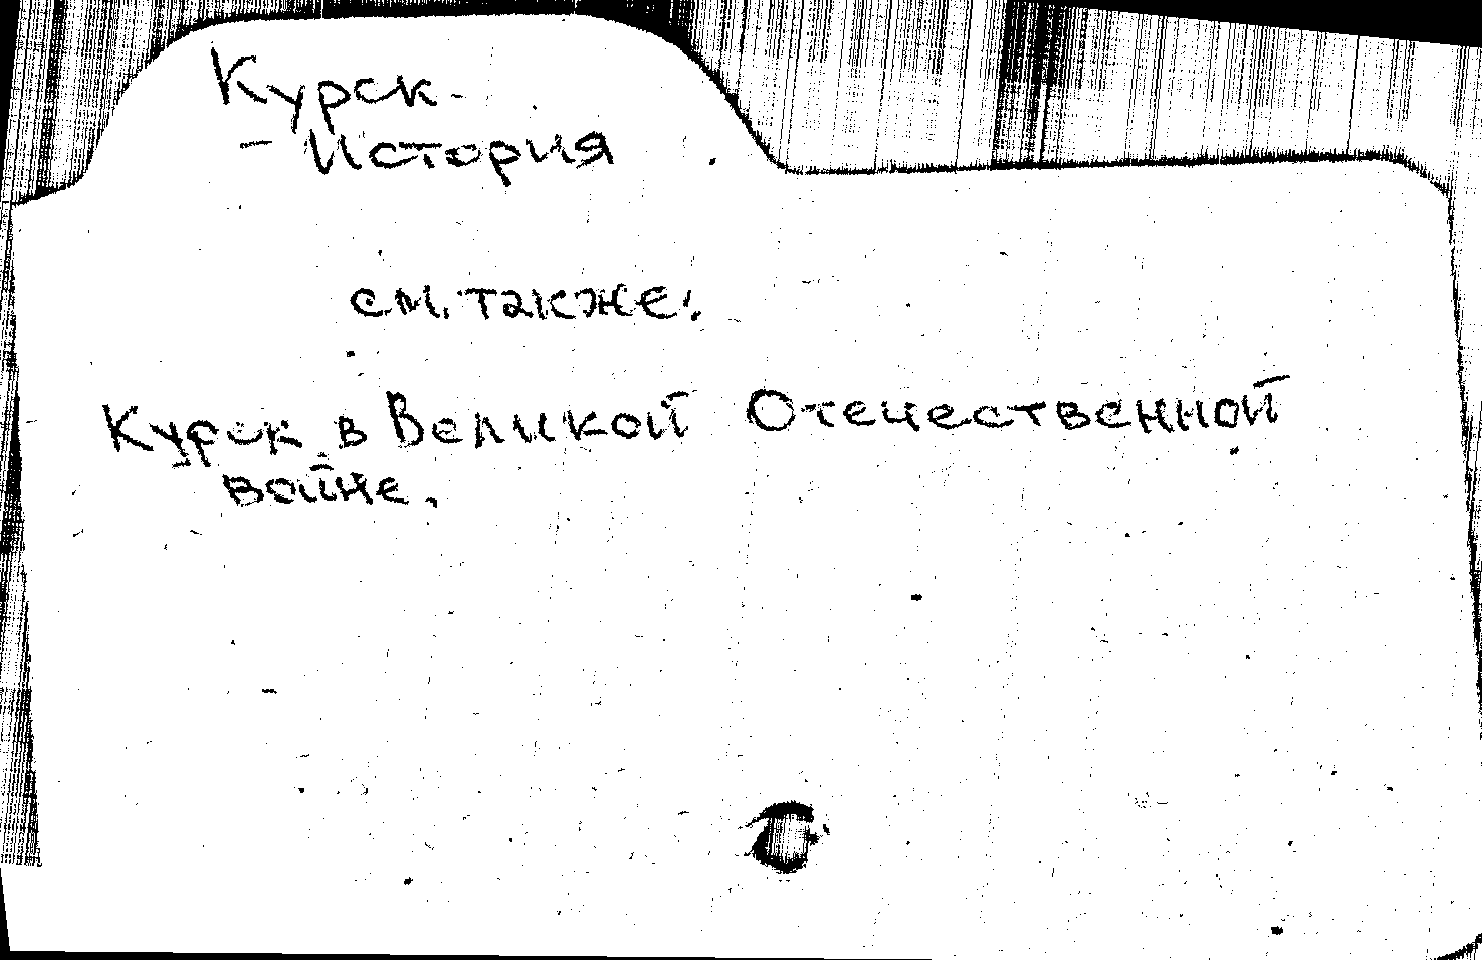 Курск -
- История
см. также:
Курск в Великой Отечественной
войне.